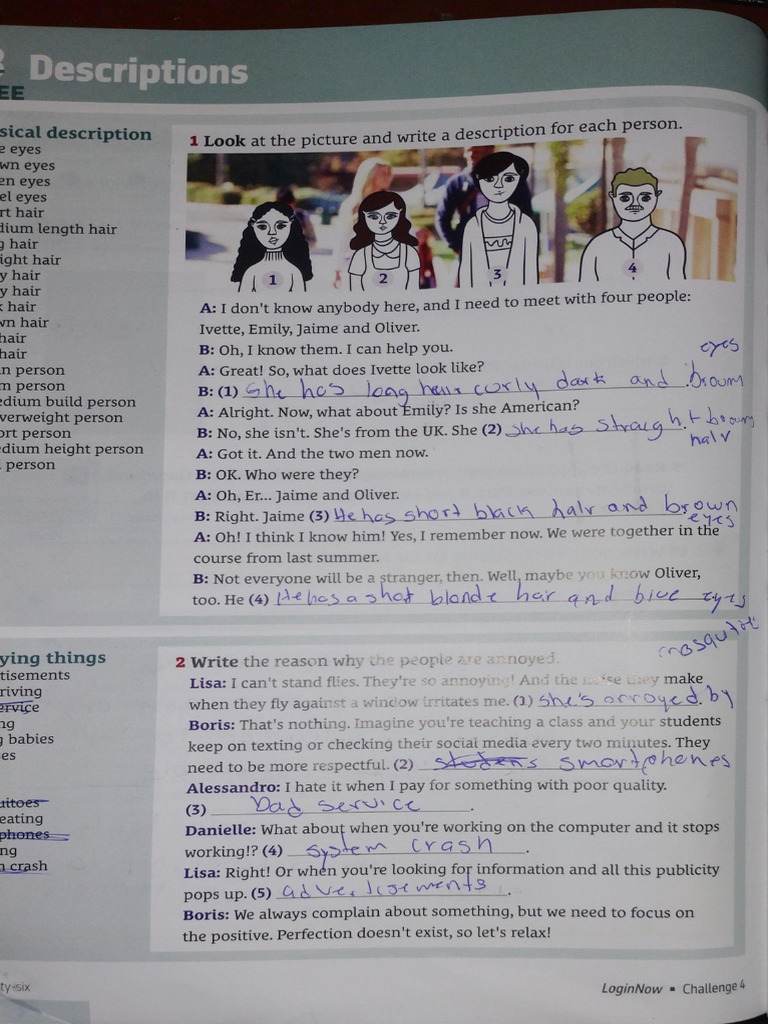 Descriptions
EE
sical description
e eyes
wn eyes
en eyes
el eyes
rt hair
dium length hair
g hair
ight hair
y hair
y hair
k hair
wn hair
hair
hair
n person
m person
edium build person
verweight person
ort person
edium height person
person
1 Look at the picture and write a description for each person.
1 2 3 4
A: I don't know anybody here, and I need to meet with four people:
Ivette, Emily, Jaime and Oliver.
B: Oh, I know them. I can help you.
A: Great! So, what does Ivette look like?
eyes
B: (1) She has long hair curly dark and brown
A: Alright. Now, what about Emily? Is she American?
B: No, she isn't. She's from the UK. She (2) she has straight brown
hair
A: Got it. And the two men now.
B: OK. Who were they?
A: Oh, Er... Jaime and Oliver.
B: Right. Jaime (3) He has short black hair and brown
eyes
A: Oh! I think I know him! Yes, I remember now. We were together in the
course from last summer.
B: Not everyone will be a stranger, then. Well, maybe you know Oliver,
too. He (4) He has a shot blonde hair and blue eyes
ying things
tisements
riving
ervice
ng
g babies
es
uitoes
eating
phones
ng
n crash
2 Write the reason why the people are annoyed.
Lisa: I can't stand flies. They're so annoying! And the noise they make
when they fly against a window irritates me. (1) she's annoyed by
Boris: That's nothing. Imagine you're teaching a class and your students
keep on texting or checking their social media every two minutes. They
need to be more respectful. (2) smartphones
Alessandro: I hate it when I pay for something with poor quality.
(3) bad service.
Danielle: What about when you're working on the computer and it stops
working!? (4) system crash.
Lisa: Right! Or when you're looking for information and all this publicity
pops up. (5) advertisements.
Boris: We always complain about something, but we need to focus on
the positive. Perfection doesn't exist, so let's relax!
ty-six
LoginNow ▪ Challenge 4